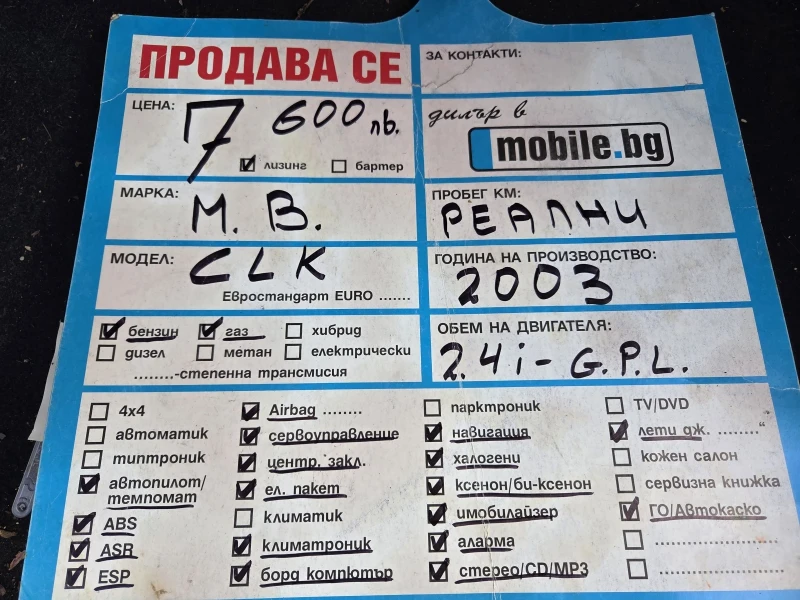 ПРОДАВА СЕ
ЗА КОНТАКТИ:
ЦЕНА: 7 600 лв.
☑ лизинг ☐ бартер
дилър в
mobile.bg
МАРКА: М. В.
ПРОБЕГ КМ: РЕАЛНИ
МОДЕЛ: CLK
Евростандарт EURO .......
ГОДИНА НА ПРОИЗВОДСТВО: 2003
☑ бензин ☑ газ ☐ хибрид
☐ дизел ☐ метан ☐ електрически
........-степенна трансмисия
ОБЕМ НА ДВИГАТЕЛЯ:
2.4i - G.P.L.
☐ 4x4
☐ автоматик
☐ типтроник
☑ автопилот/
темпомат
☑ ABS
☑ ASR
☑ ESP
☑ Airbag ........
☑ сервоуправление
☑ центр. закл.
☑ ел. пакет
☐ климатик
☑ климатроник
☑ борд компютър
☐ парктроник
☑ навигация
☑ халогени
☑ ксенон/би-ксенон
☑ имобилайзер
☑ аларма
☑ стерео/CD/MP3
☐ TV/DVD
☑ лети дж. ........“
☐ кожен салон
☐ сервизна книжка
☑ ГО/Автокаско
☐ .........................
☐ .........................